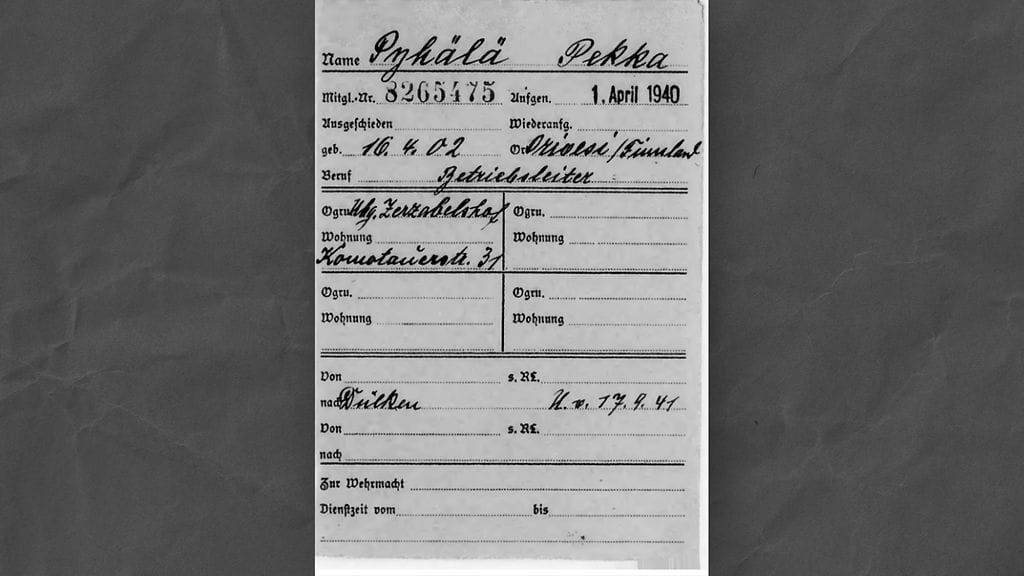 Name Pyhälä Pekka
Mitgl.-Nr. 8265475 Aufgen. 1. April 1940
Ausgeschieden Wiederaufg.
geb. 16. 4. 02 Ort Orivesi / Finnland
Beruf Betriebsleiter
Ogru. Nbg. Zerzabelshof Ogru.
Wohnung Wohnung
Komotauerstr. 31
Ogru. Ogru.
Wohnung Wohnung
Von s. RL.
nach Dülken U. v. 17. 9. 41
Von s. RL.
nach
Zur Wehrmacht
Dienstzeit vom bis